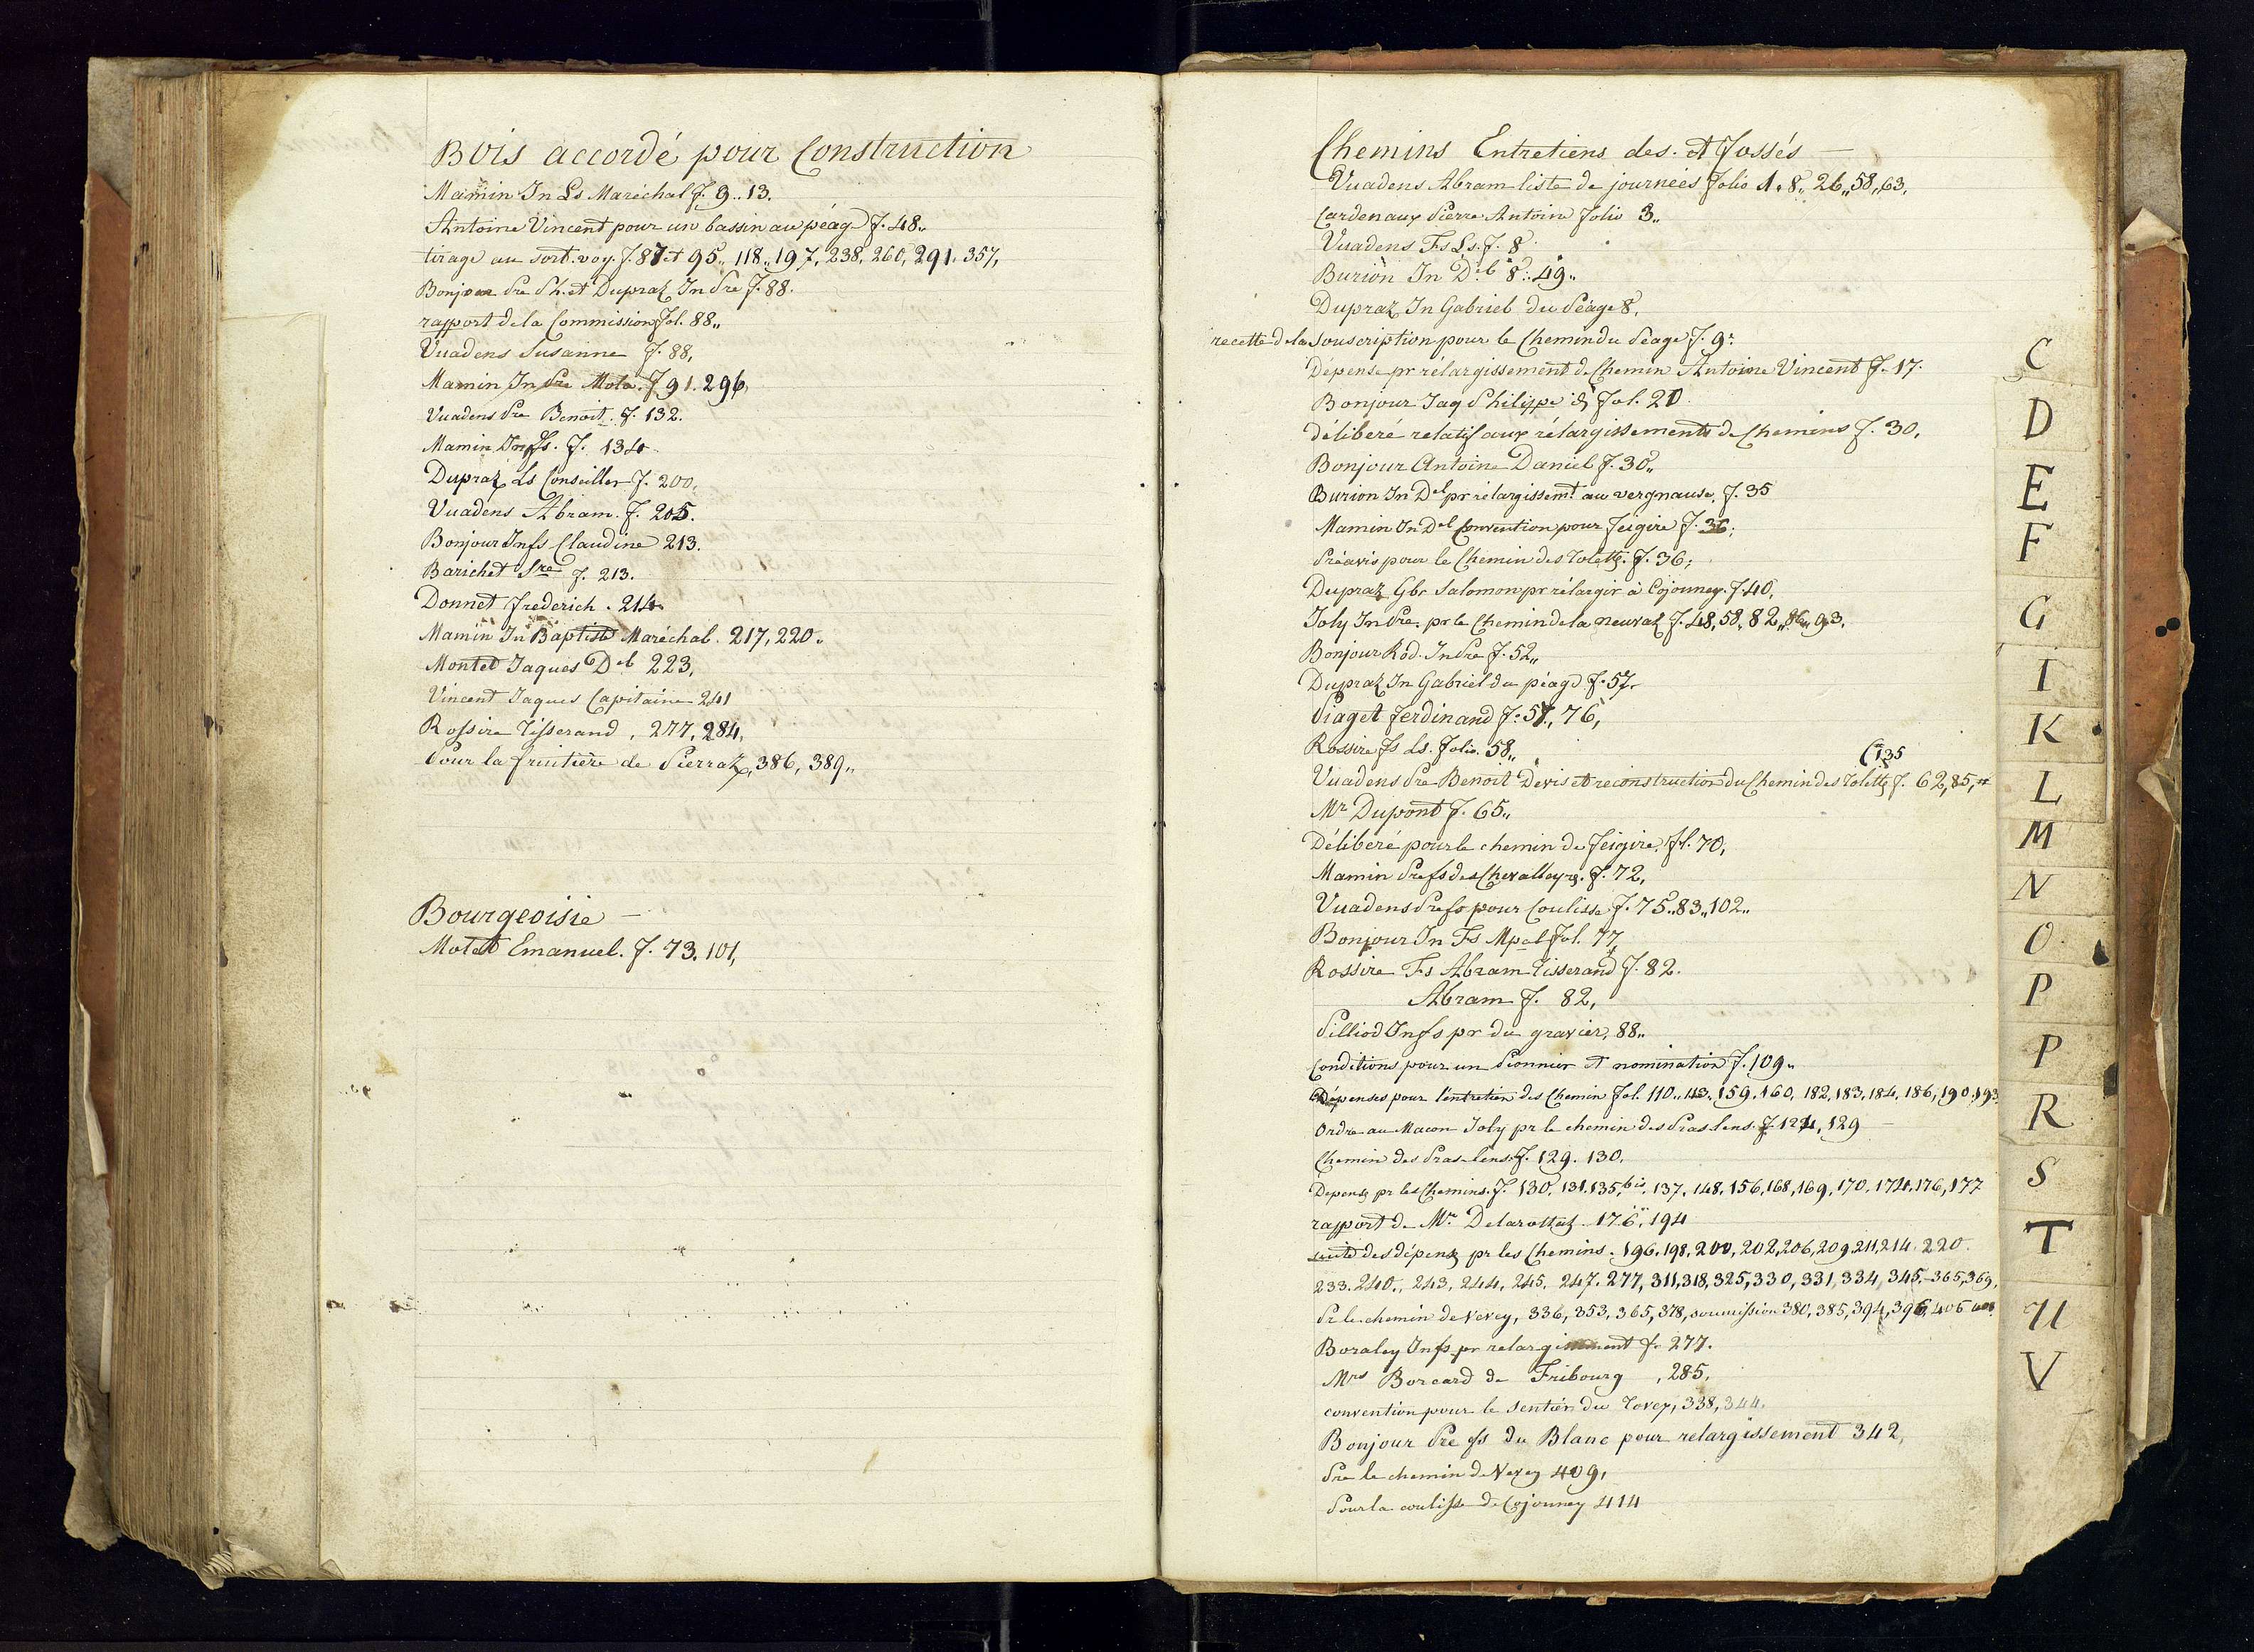 Bois accordé pour Construction
Mamin Jn Ls Maréchal f. 9..13.
Antoine Vincent pour un bassin au péage f. 48..
tirage au sort. voy. f. 87 et 95.. 118.. 197, 238, 260, 291. 357,
Bonjour Pre Ph. et Dupraz Jn Pre f. 88.
rapport de la Commission fol. 88..
Vuadens Susanne f. 88,
Mamin Jn Pre Mola. f 91. 296,
Vuadens Pre Benoit. f. 132.
Mamin Jn fs. f. 134
Dupraz Ls Conseiller f. 200,
Vuadens Abram. f. 205.
Bonjour Jnfs Claudine 213.
Barichet Pre f. 213.
Donnet frederich. 214.
Mamin Jn Baptiste Maréchal. 217, 220.
Montet Jaques Del 223,
Vincent Jaques Capitaine 241
Rossire Tisserand, 277, 284,
Pour la fruitière de Pierraz, 386, 389..
Bourgeoisie
Motet Emanuel. f. 73. 101,
Chemins Entretiens des. et Fossés
Vuadens Abram liste de journées folio 1. 8.. 26.. 58,, 63,
Cardenaux Pierre Antoine folio 3..
Vuadens Fs Ls. f. 8
Burion Jn Del 8.. 49..
Dupraz Jn Gabriel du Péage 8,
recette de la souscription pour le Chemin du Péage f. 9.
Dépense pr rélargissement de Chemin Antoine Vincent f. 17.
Bonjour Jaq Philippe id fol. 20
délibéré relatif aux rélargissements de Chemins f. 30,
Bonjour Antoine Daniel f. 30..
Burion Jn Del pr rélargissemt au vergnause, f. 35
Mamin Jn Del Convention pour feigire f. 36;
Préavis pour le Chemin des Tolettz. f. 36;
Dupraz Gbr Salomon pr rélargir à Cojonney f. 40,
Joly Jn Pre. pr le Chemin de la neuvaz f. 48, 58, 82,, 86,, 93,
Bonjour Rod. Jn Pre f. 52,,
Dupraz Jn Gabriel du péage f. 57.
Piaget ferdinand f. 57., 76,
Rossire fs Ls. folio. 58,,
(135
Vuadens Pre Benoit Devis et reconstruction du Chemin des Tolettz f. 62, 85,
Mr Dupont f. 65..
Délibéré pour le chemin de feigire, fl. 70,
Mamin Pre fs des Chevalleyrs. f. 72,
Vuadens Pre fs pour Coulisse f. 75.. 83,, 102..
Bonjour Jn Fs Mpal fol. 77,
Rossire Fs Abram Tisserand f. 82.
Abram f. 82,
Pilliod Jnfs pr du gravier, 88..
Conditions pour un Pionnier et nomination f. 109..
Dépenses pour l'entretien des Chemin fol. 110.. 113, 159, 160, 182, 183, 184, 186, 190, 193
Ordre au Macon Joly pr le chemin des Pras lens. f. 124, 129
Chemin des Pras-lens. f. 129. 130,
Depensz pr les Chemins. f. 130, 131. 135 bis, 137, 148, 156, 168, 169, 170, 174, 176, 177
rapport de Mr Delarottaz 176, 194
suite des dépensz pr les Chemins. 196, 198, 200, 202, 206, 209, 211, 214, 220.
233. 240., 243, 244, 245, 247, 277, 311, 318, 325, 330, 331, 334, 345,-365, 369,
Pr le chemin de Vevey, 336, 353, 365, 378, soumission 380, 385, 394, 396, 406
Boraley Jnfs pr relargissement f. 277.
Mrs Borcard de Fribourg, 285,
convention pour le sentier du Tovey, 338, 344.
Bonjour Pre fs du Blanc pour relargissement 342,
Pre le chemin de Vevey 409,
Pour la coulisse de Cojonney 414
C
D
E
F
G
I
K
L
M
N
O
P
P
R
S
T
U
V